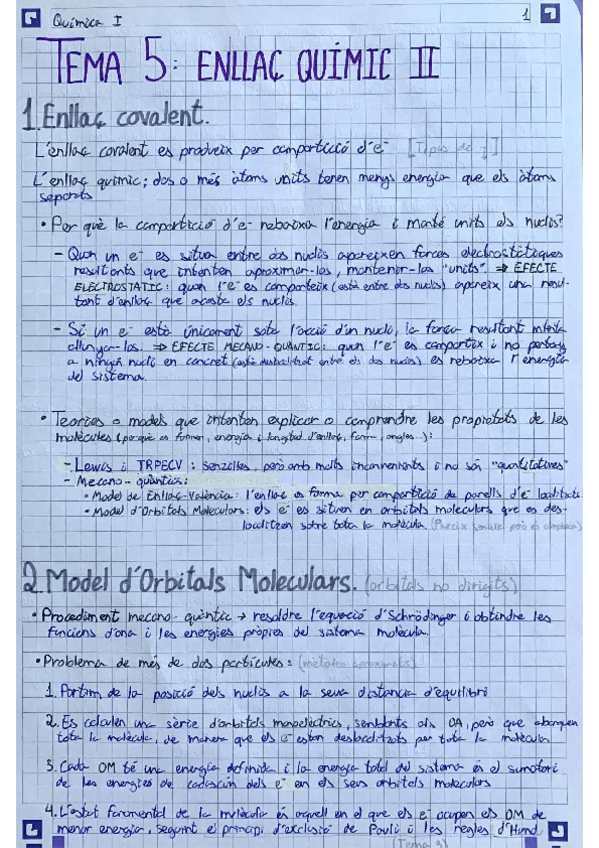 Química I
1
TEMA 5: ENLLAÇ QUÍMIC II
1. Enllaç covalent.
L'enllaç covalent es produeix per compartició d'e⁻ [Tipus de
L'enllaç químic; dos o més àtoms units tenen menys energia que els àtoms
separats
• Per què la compartició d'e⁻ rebaixa l'energia i manté units els nuclis?
- Quan un e⁻ es situa entre dos nuclis apareixen forces electrostàtiques
resultants que intenten aproximar-los, mantenir-los "units". ⇒ EFECTE
ELECTROSTÀTIC: quan l'e⁻ es comparteix (està entre dos nuclis) apareix una resul-
tant d'enllaç que acosta els nuclis.
- Si un e⁻ està únicament sota l'acció d'un nucli, la força resultant intenta
allunyar-los. ⇒ EFECTE MECANO-QUÀNTIC: quan l'e⁻ es compartix i no pertany
a ningún nucli en concret (està deslocalitzat entre els dos nuclis) es rebaixa l'energia
del sistema.
• Teories o models que intenten explicar o comprendre les propietats de les
molècules (perquè es formen, energia i longitud d'enllaç, forma, angles...):
- Lewis i TRPECV: senzilles, però amb molts inconvenients i no són "quantitatives"
- Mecano-quàntica:
• Model de Enllaç-València: l'enllaç es forma per compartició de parells d'e⁻ localitzats
• Model d'Orbitals Moleculars: els e⁻ es situen en orbitals moleculars que es des-
localitzen sobre tota la molècula. (Pareix però és
2. Model d'Orbitals Moleculars. (orbitals no dirigits)
• Procediment mecano-quàntic → resoldre l'equació d'Schrödinger i obtindre les
funcions d'ona i les energies pròpies del sistema molècula.
• Problema de més de dos partícules: (mètodes aproximats)
1. Partim de la posició dels nuclis a la seua distància d'equilibri
2. Es calculen una sèrie d'orbitals monoelèctrics, semblants als OA, però que abarquen
tota la molècula, de manera que els e⁻ estan deslocalitzats per tota la molècula
3. Cada OM té una energia definida i la energia total del sistema és el sumatori
de les energies de cadascún dels e⁻ en els seus orbitals moleculars
4. L'estat fonamental de la molècula és aquell en el que els e⁻ ocupen els OM de
menor energia, seguint el principi d'exclusió de Pauli i les regles d'Hund.
(Tema 3)